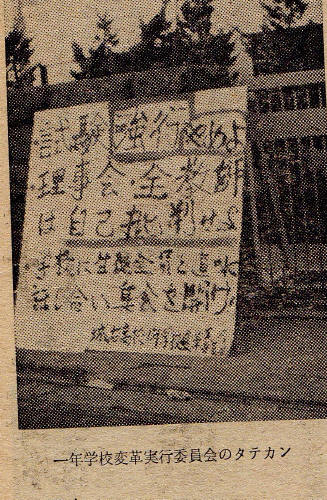 ・試験強行やめよ
・理事会・全教師
は自己批判せよ
・学校は生徒全員と直ちに
話し合い会を開け
一年学校変革実行委員会のタテカン